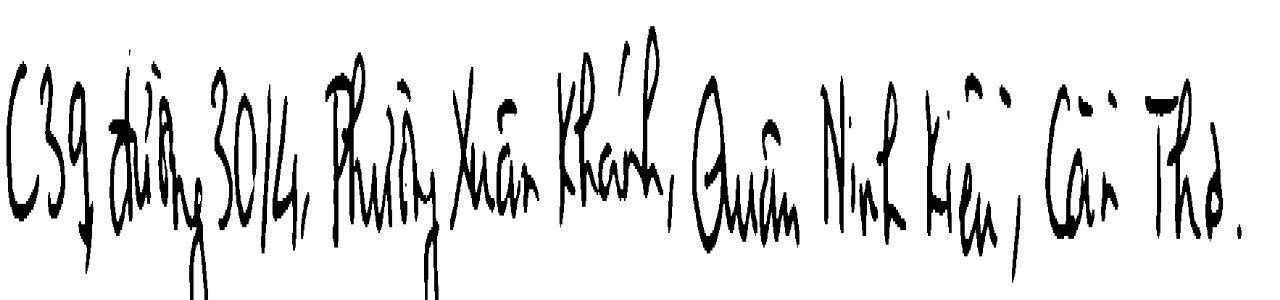 C39, đường 30/4, Phường Xuân Khánh, Quận Ninh Kiều, Cần Thơ.